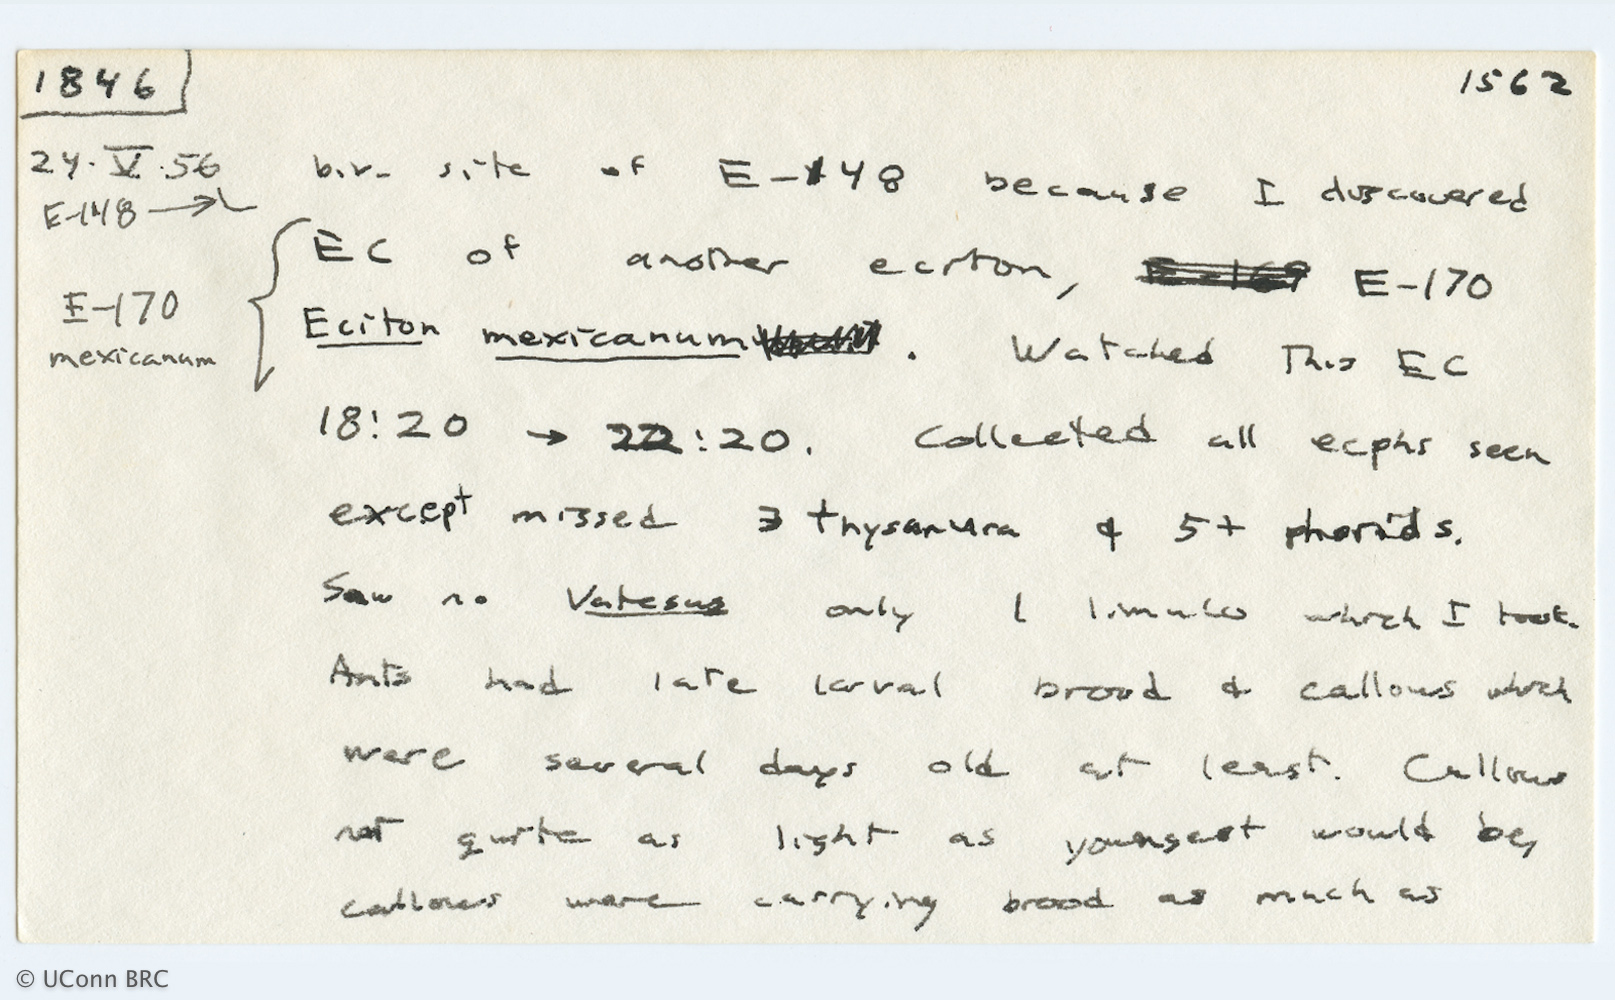 1846
1562
24.V.56
E-148 →
E-170
mexicanum
biv. site of E-148 because I discovered
EC of another eciton, E-169 E-170
Eciton mexicanum. Watched this EC
18:20 → 22:20. Collected all ecphs seen
except missed 3 thysanura & 5+ phorids.
Saw no Vatesus only 1 limulo which I took.
Ants had late larval brood & callows which
were several days old at least. Callows
not quite as light as youngest would be,
callows were carrying brood as much as
© UConn BRC